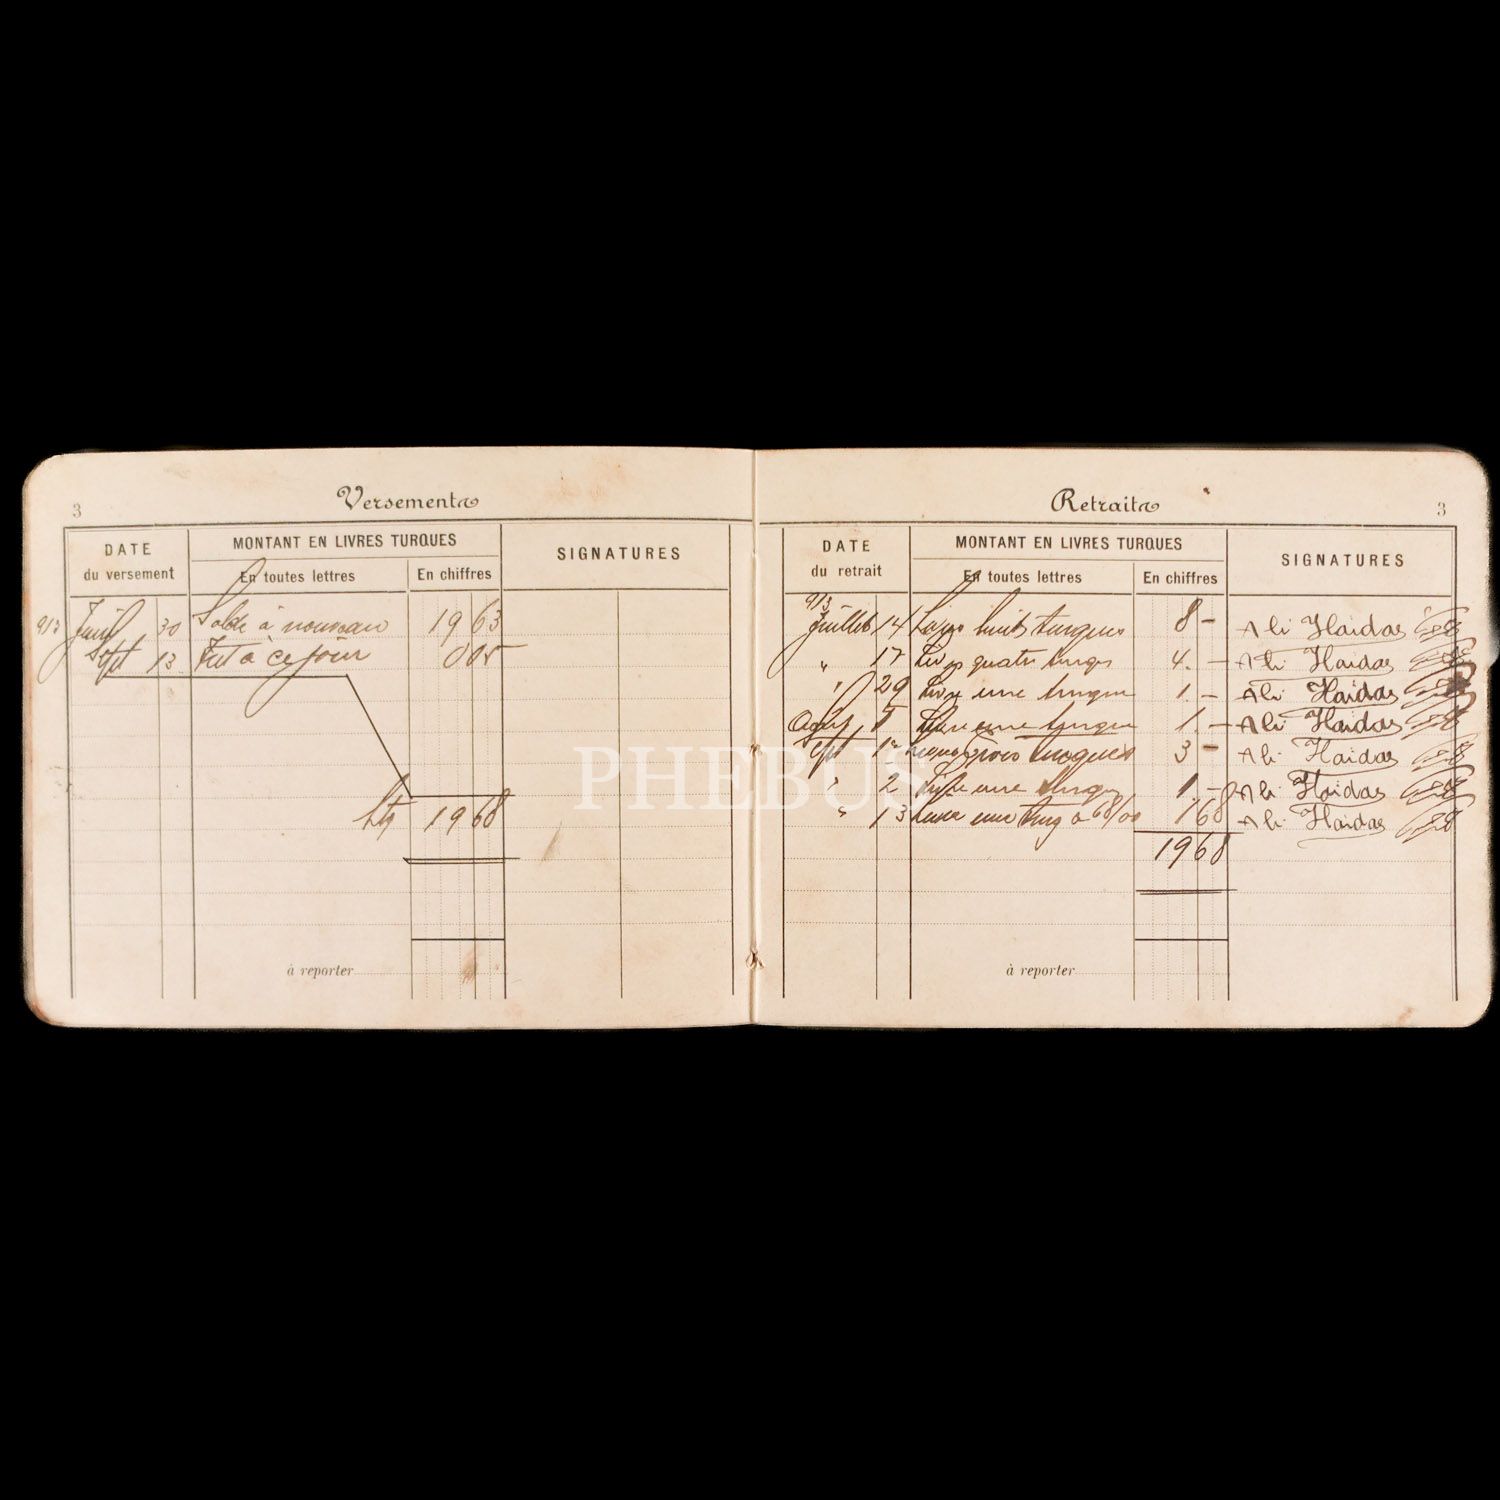 3
Versements
DATE
du versement
MONTANT EN LIVRES TURQUES
En toutes lettres
En chiffres
SIGNATURES
913 Juin 30 Solde à nouveau 19 63
Sept 13 Int à ce jour 0 05
Ltq 19 68
à reporter
Retraits
3
DATE
du retrait
MONTANT EN LIVRES TURQUES
En toutes lettres
En chiffres
SIGNATURES
913
Juillet 14 Livres huit turques 8 - Ali Haidar
" 17 Livres quatre turques 4. - Ali Haidar
" 29 Livre une turque 1. - Ali Haidar
Août 5 Livre une turque 1. - Ali Haidar
Sept Livres trois turques 3 - Ali Haidar
" 2 Livre une turque 1. - Ali Haidar
" 13 Livre une turq & 68/00 1 68 Ali Haidar
19 68
à reporter
PHEBUS